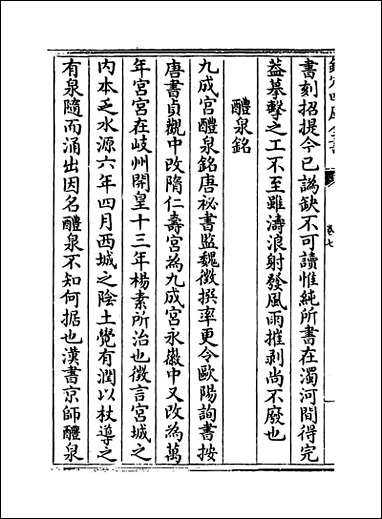 欽定四庫全書
卷七
書刻招提今已譌缺不可讀惟純所書在濁河間得完
葢摹擊之工不至雖濤浪射發風雨摧剥尚不廢也
醴泉銘
九成宫醴泉銘唐祕書監魏徵撰率更令歐陽詢書按
唐書貞觀中改隋仁壽宫為九成宫永徽中又改為萬
年宫宫在岐州開皇十三年楊素所治也徵言宫城之
内本乏水源六年四月西城之隂土覺有潤以杖導之
有泉隨而涌出因名醴泉不知何据也漢書京師醴泉